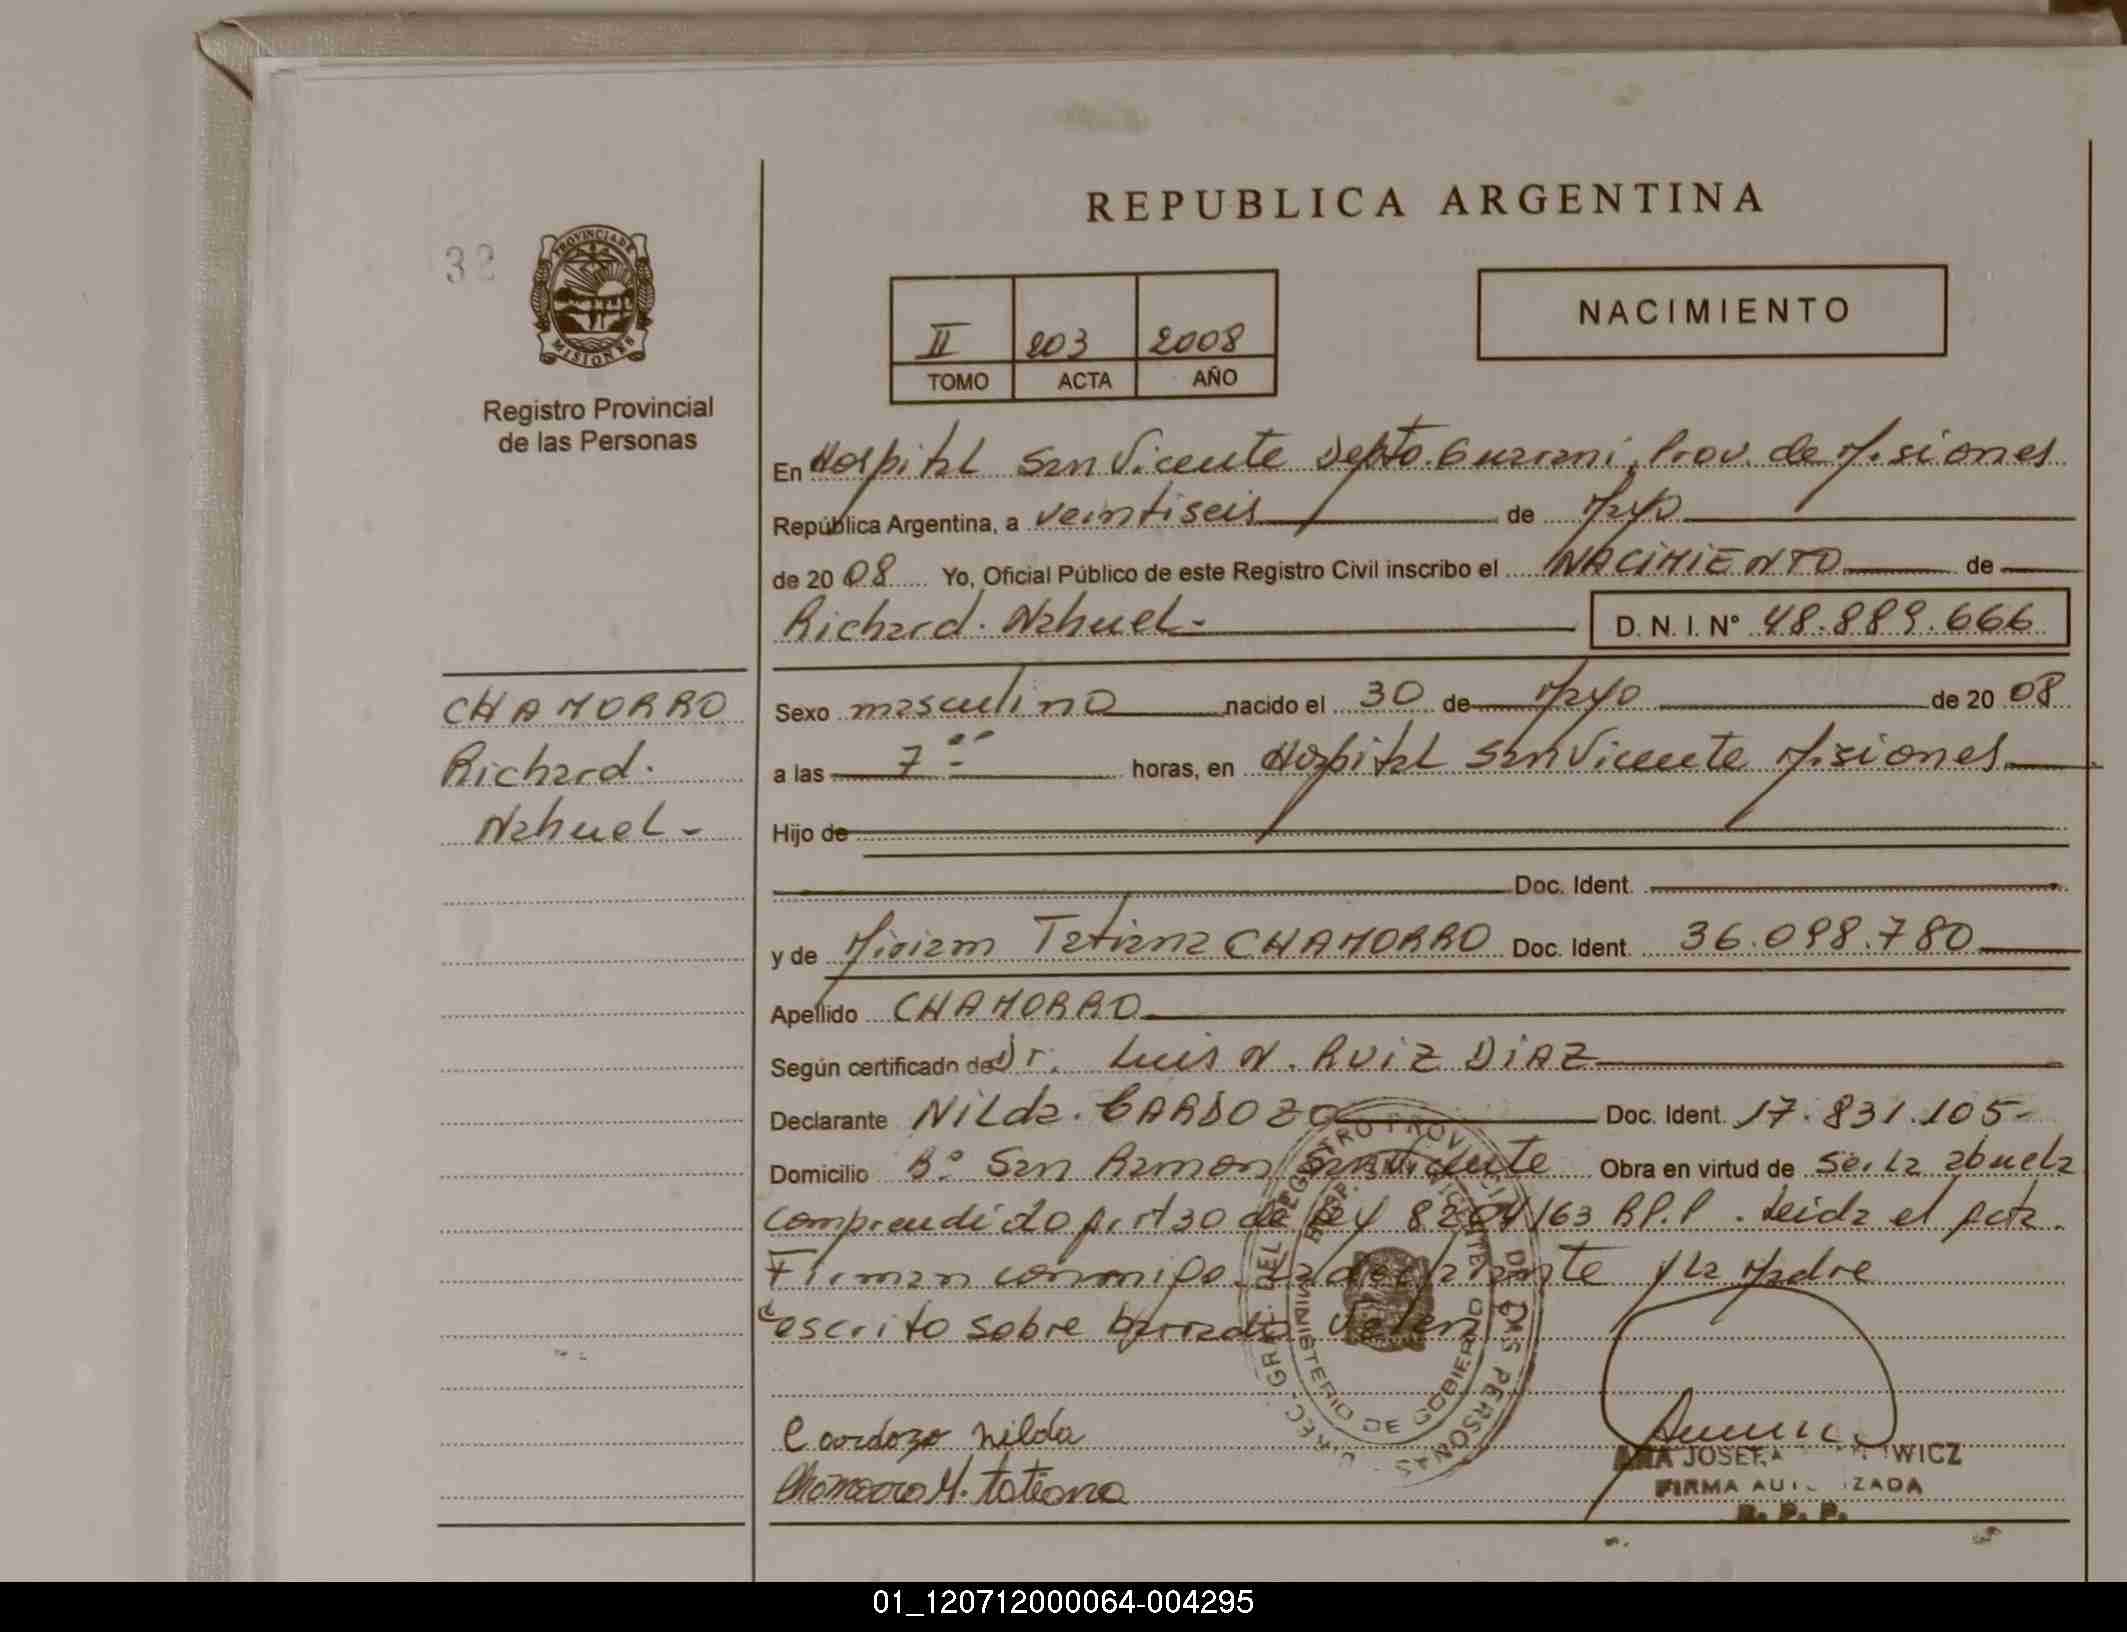 REPUBLICA ARGENTINA
32
PROVINCIA DE
MISIONES
Registro Provincial
de las Personas
II 203 2008
TOMO ACTA AÑO
NACIMIENTO
En Hospital San Vicente Depto. Guarani, Prov. de Misiones
República Argentina, a veintiseis de Mayo
de 2008 Yo, Oficial Público de este Registro Civil inscribo el NACIMIENTO de
Richard. Nahuel- D. N. I. Nº 48.889.666
CHAMORRO
Richard.
Nahuel-
Sexo masculino nacido el 30 de Mayo de 2008
a las 7 oo horas, en Hospital San Vicente Misiones
Hijo de
Doc. Ident.
y de Miriam Tatiana CHAMORRO Doc. Ident. 36.098.780
Apellido CHAMORRO
Según certificado de Dr. Luis N. RUIZ DIAZ
Declarante Nilda. CARDOZO Doc. Ident. 17.831.105-
Domicilio Bº San Ramon San Vicente Obra en virtud de ser la abuela
Comprendido Art 30 de Ley 8204/63 R.P.P. Leida el Acta.
Firman conmigo la declarante y la Madre
escrito sobre borrado Vale
DIREC. GRAL. DEL REGISTRO PROVINCIAL DE LAS PERSONAS
HOSP. SAN VICENTE
MINISTERIO DE GOBIERNO
Cardozo Nilda
Chamorro M. Tatiana
ANA JOSEFA WICZ
FIRMA AUTORIZADA
R. P. P.
01_120712000064-004295